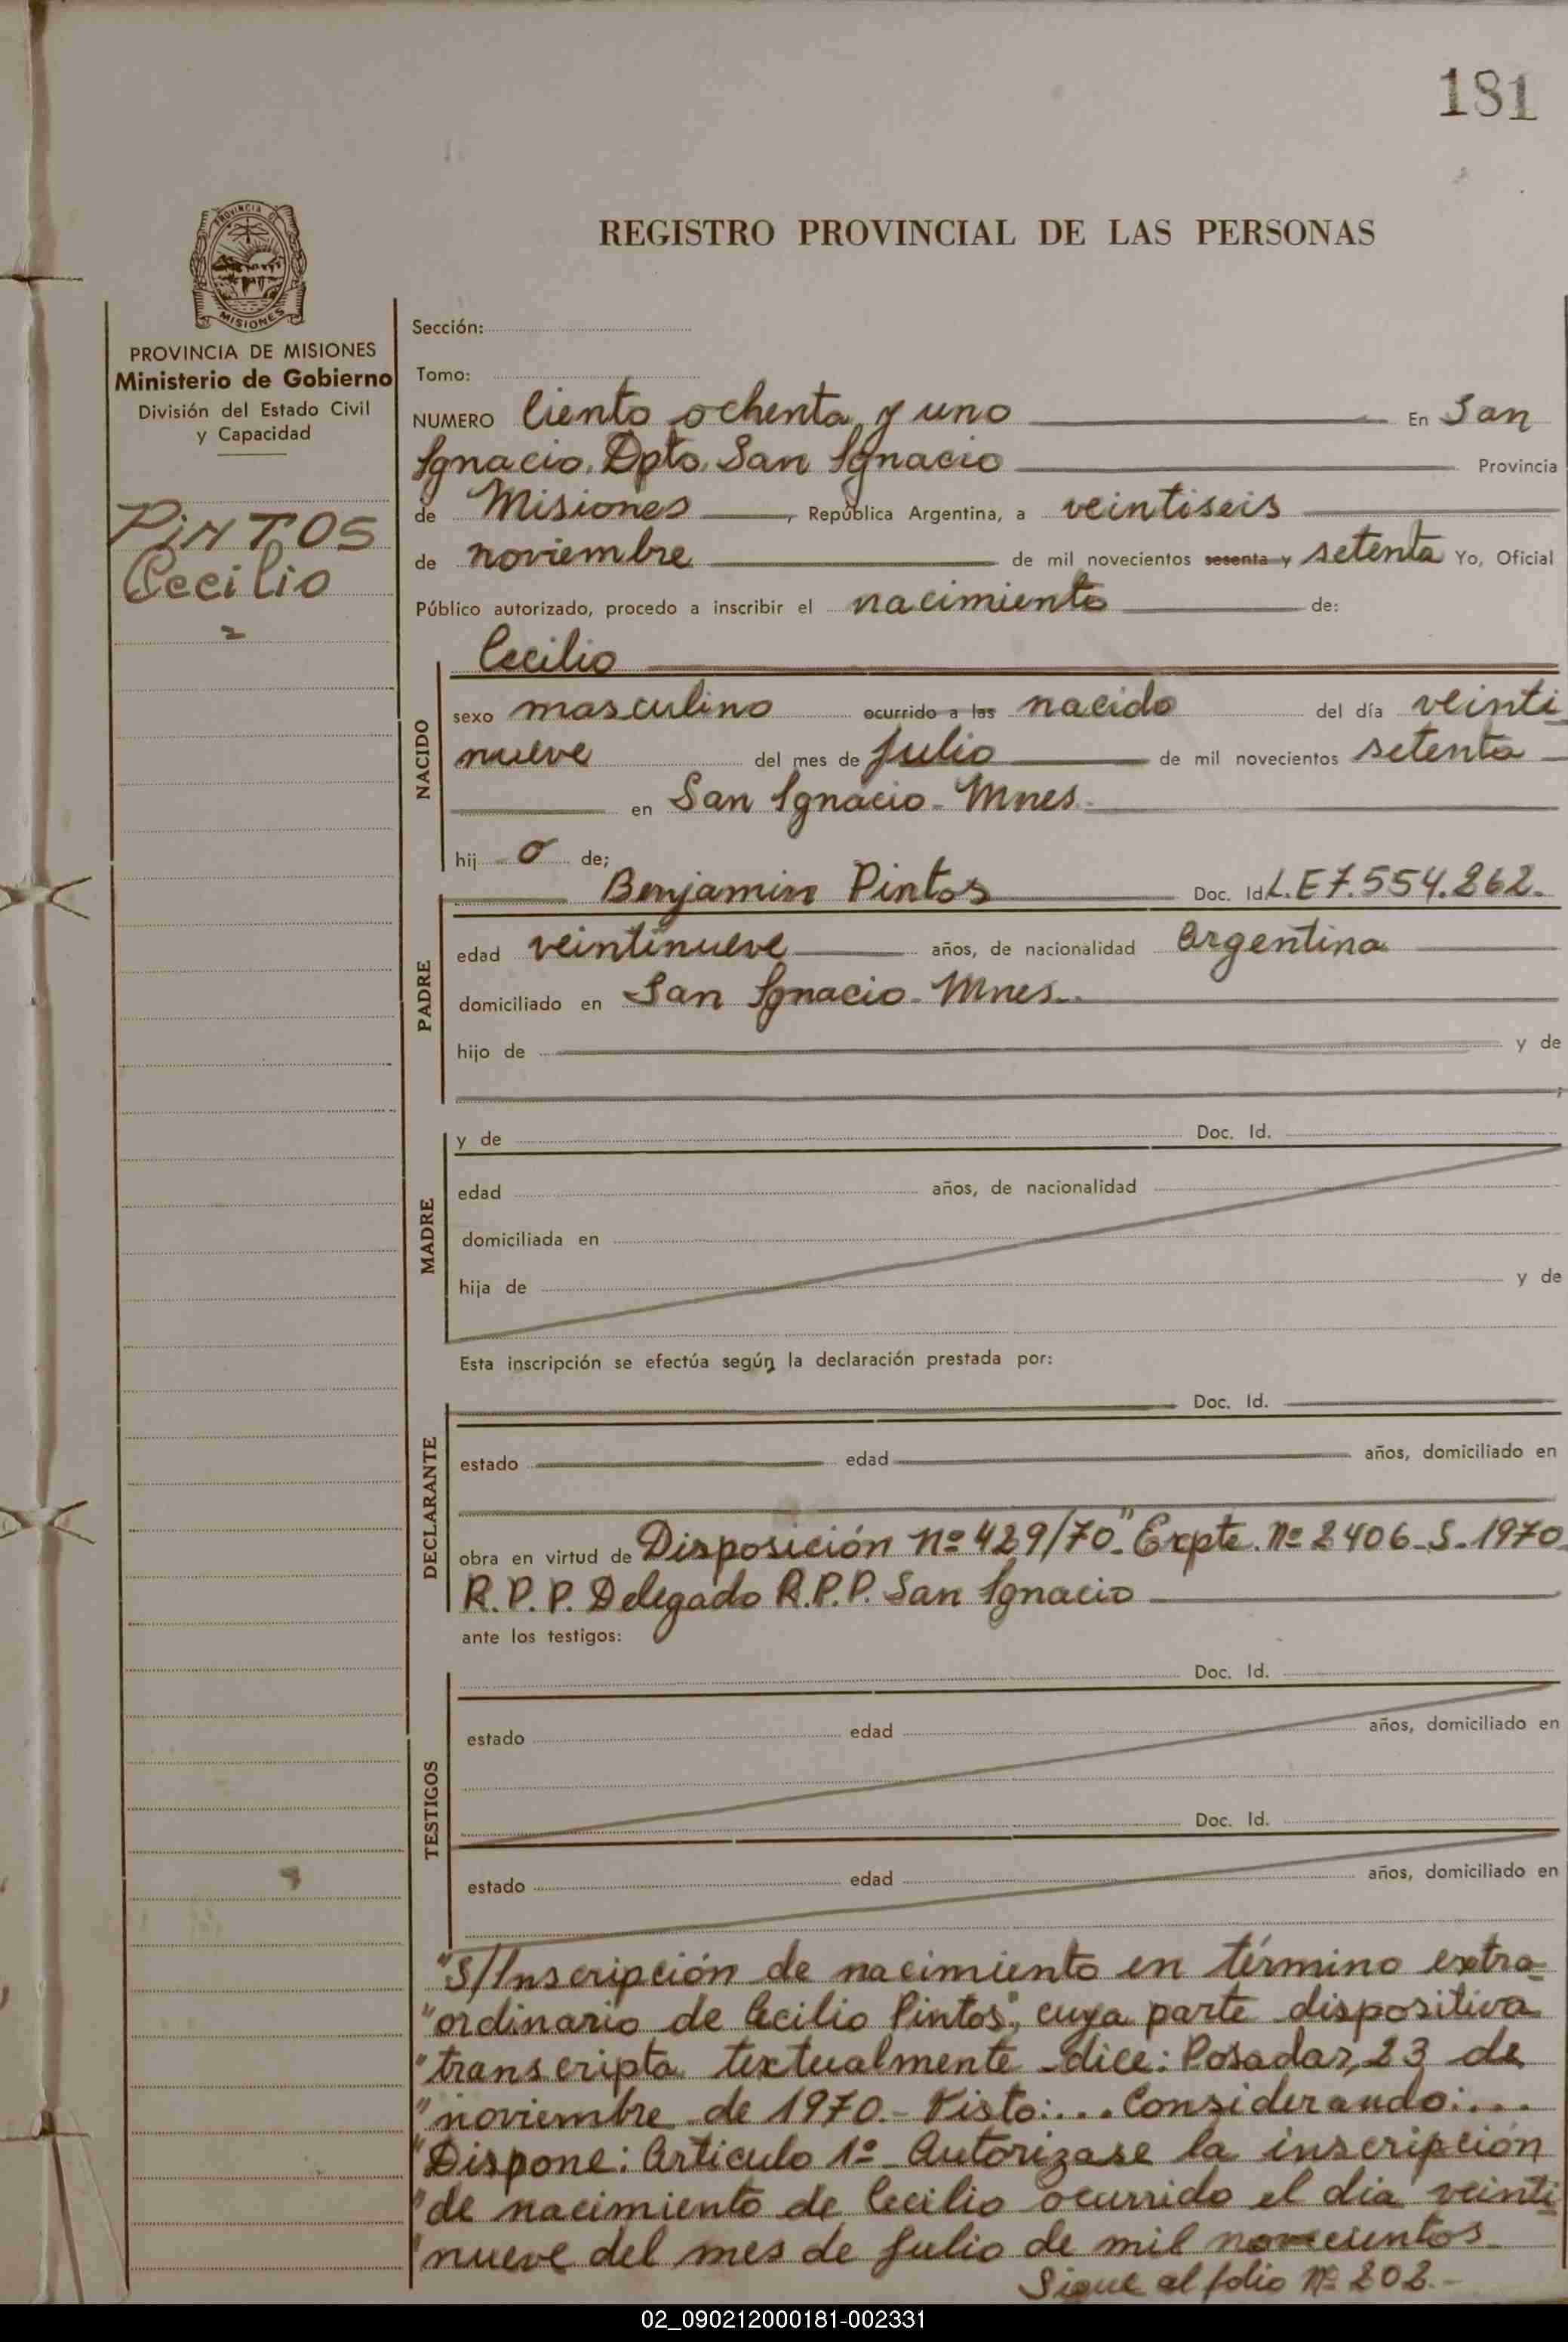 181
PROVINCIA DE
MISIONES
REGISTRO PROVINCIAL DE LAS PERSONAS
PROVINCIA DE MISIONES
Ministerio de Gobierno
División del Estado Civil
y Capacidad
PINTOS
Cecilio
Sección:
Tomo:
NUMERO Ciento ochenta y uno En San
Ignacio, Dpto. San Ignacio Provincia
de Misiones, República Argentina, a veintiseis
de noviembre de mil novecientos sesenta y setenta Yo, Oficial
Público autorizado, procedo a inscribir el nacimiento de:
NACIDO
Cecilio
sexo masculino ocurrido a las nacido del día veinti
nueve del mes de Julio de mil novecientos setenta
en San Ignacio - Mnes.
hij o de;
PADRE
Benjamin Pintos Doc. Id. L.E 7.554.262.
edad veintinueve años, de nacionalidad Argentina
domiciliado en San Ignacio - Mnes.
hijo de y de
;
MADRE
y de Doc. Id.
edad años, de nacionalidad
domiciliada en
hija de y de
Esta inscripción se efectúa según la declaración prestada por:
DECLARANTE
Doc. Id.
estado edad años, domiciliado en
obra en virtud de Disposición Nº 429/70" Expte. Nº 2406-S-1970
R.P.P. Delegado R.P.P. San Ignacio
ante los testigos:
TESTIGOS
Doc. Id.
estado edad años, domiciliado en
Doc. Id.
estado edad años, domiciliado en
"S/Inscripción de nacimiento en término extra-
"ordinario de Cecilio Pintos", cuya parte dispositiva
"transcripta textualmente dice: Posadas, 23 de
"noviembre de 1970.- Visto:... Considerando:...
"Dispone: Articulo 1º - Autorizase la inscripción
"de nacimiento de Cecilio ocurrido el dia veinti
"nueve del mes de Julio de mil novecientos
Sigue al folio Nº 202.-
02_090212000181-002331